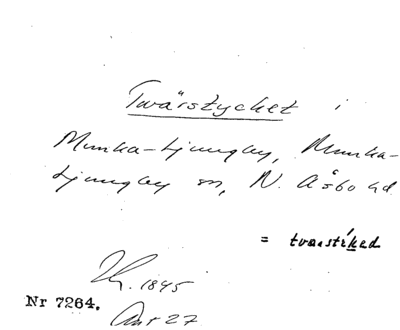 Tvärstycket i
Munka-Ljungby, Munka-
Ljungby sn, N. Åsbo hd
= tvarstiked
1845
Nr 7264.
27